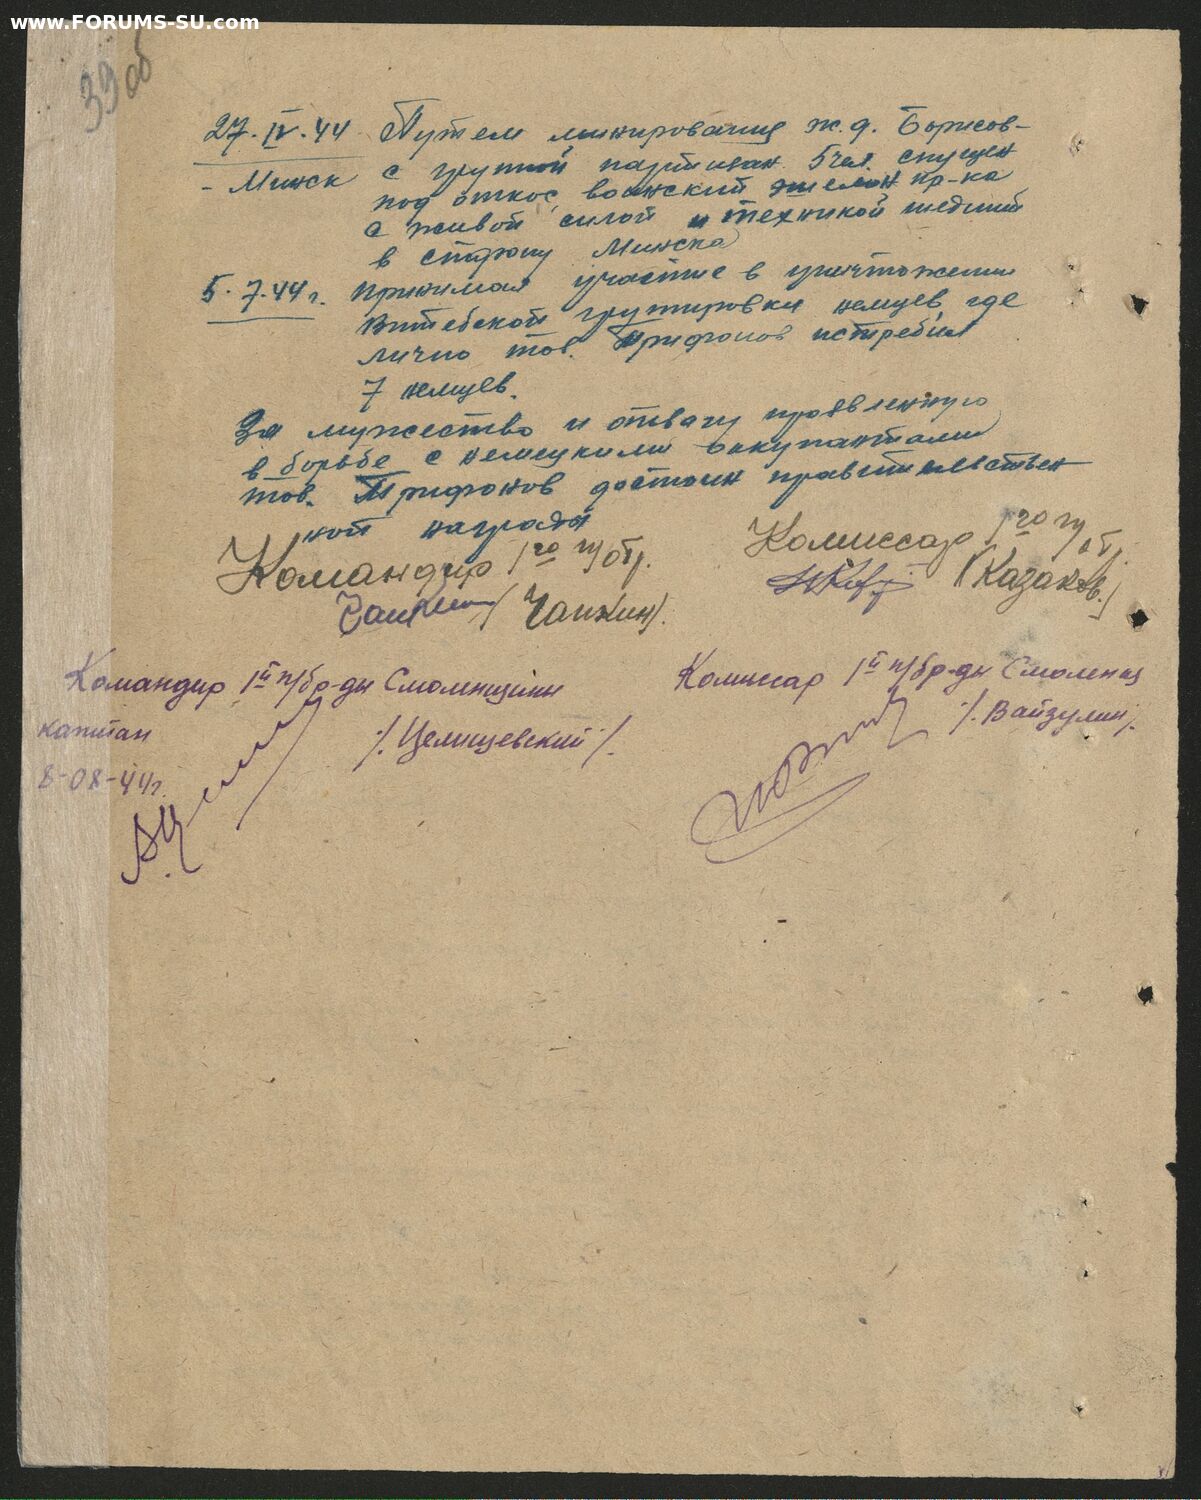 www.FORUMS-SU.com
39об
27.IV.44 Путем минирования ж.д. Борисов-
- Минск с группой партизан 5 чел. спущен
под откос воинский эшелон пр-ка
с живой силой и техникой шедший
в сторону Минска
5.7.44 г. Принимая участие в уничтожении
Витебской групировки немцев, где
лично тов. Трифонов истребил
7 немцев.
За мужество и отвагу проявленную
в борьбе с немецкими оккупантами
тов. Трифонов достоин правительствен
ной награды
Командир 1го п/отр. Комиссар 1го п/отр.
(Чапкин). (Казаков.)
Командир 1й п/бр-ды Смоленщины Комиссар 1й п/бр-ды Смоленщ
капитан /.Целищевский/. /.Вайзулин/.
8-08-44г.